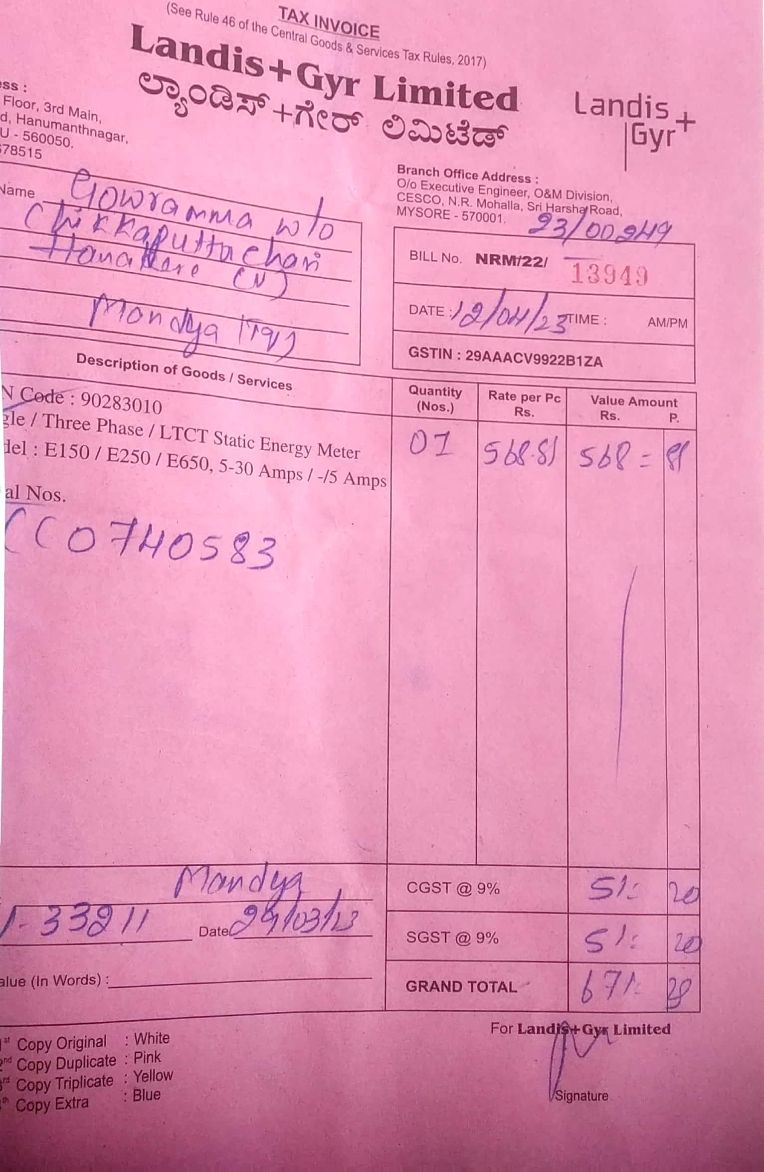 TAX INVOICE
(See Rule 46 of the Central Goods & Services Tax Rules, 2017)
Landis+Gyr Limited
ಲ್ಯಾಂಡಿಸ್+ಗೇರ್ ಲಿಮಿಟೆಡ್
Landis+
Gyr
ess :
Floor, 3rd Main,
d, Hanumanthnagar,
U - 560050.
678515
Branch Office Address :
O/o Executive Engineer, O&M Division,
CESCO, N.R. Mohalla, Sri Harsha Road,
MYSORE - 570001.
23/00249
Name Gowramma w/o
Chikkaputtachari
Hanakere (V)
Mandya (TQ)
BILL No. NRM/22/ 13949
DATE : 12/04/23 TIME : AM/PM
GSTIN : 29AAACV9922B1ZA
Description of Goods / Services Quantity (Nos.) Rate per Pc Rs. Value Amount Rs. P.
N Code : 90283010
gle / Three Phase / LTCT Static Energy Meter 01 568.81 568 = 81
del : E150 / E250 / E650, 5-30 Amps / -/5 Amps
al Nos.
CC0740583
Mandya
CGST @ 9% 51: 20
33211 Date 29/03/23
SGST @ 9% 51: 20
alue (In Words) :
GRAND TOTAL 671:
For Landis+Gyr Limited
1st Copy Original : White
nd Copy Duplicate : Pink
rd Copy Triplicate : Yellow
th Copy Extra : Blue
Signature